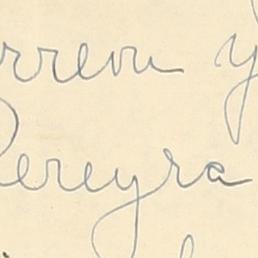 rreou y
Pereyra